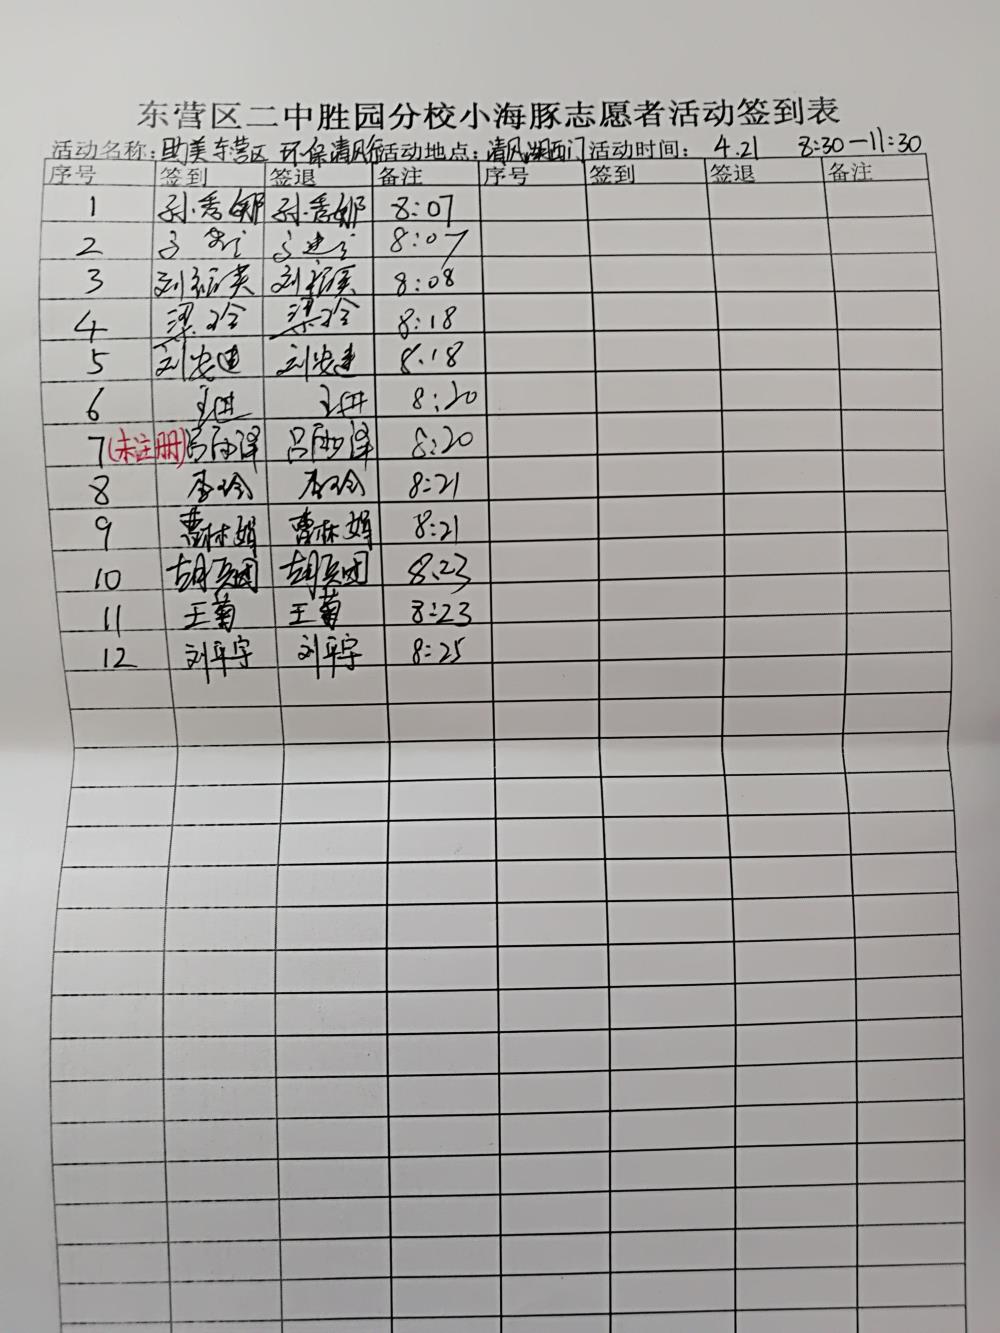 东营区二中胜园分校小海豚志愿者活动签到表
活动名称：助美东营区 环保清风行 活动地点：清风湖西门 活动时间： 4.21 8:30—11:30
序号 签到 签退 备注 序号 签到 签退 备注
1 孙秀娜 孙秀娜 8:07
2 8:07
3 刘 刘 8:08
4 梁玲 梁玲 8:18
5 刘安建 刘安建 8:18
6 8:20
7(未注册) 吕 泽 吕 泽 8:20
8 李玲 李玲 8:21
9 曹林娟 曹林娟 8:21
10 胡 团 胡 团 8:23
11 王菊 王菊 8:23
12 刘平宇 刘平宇 8:25